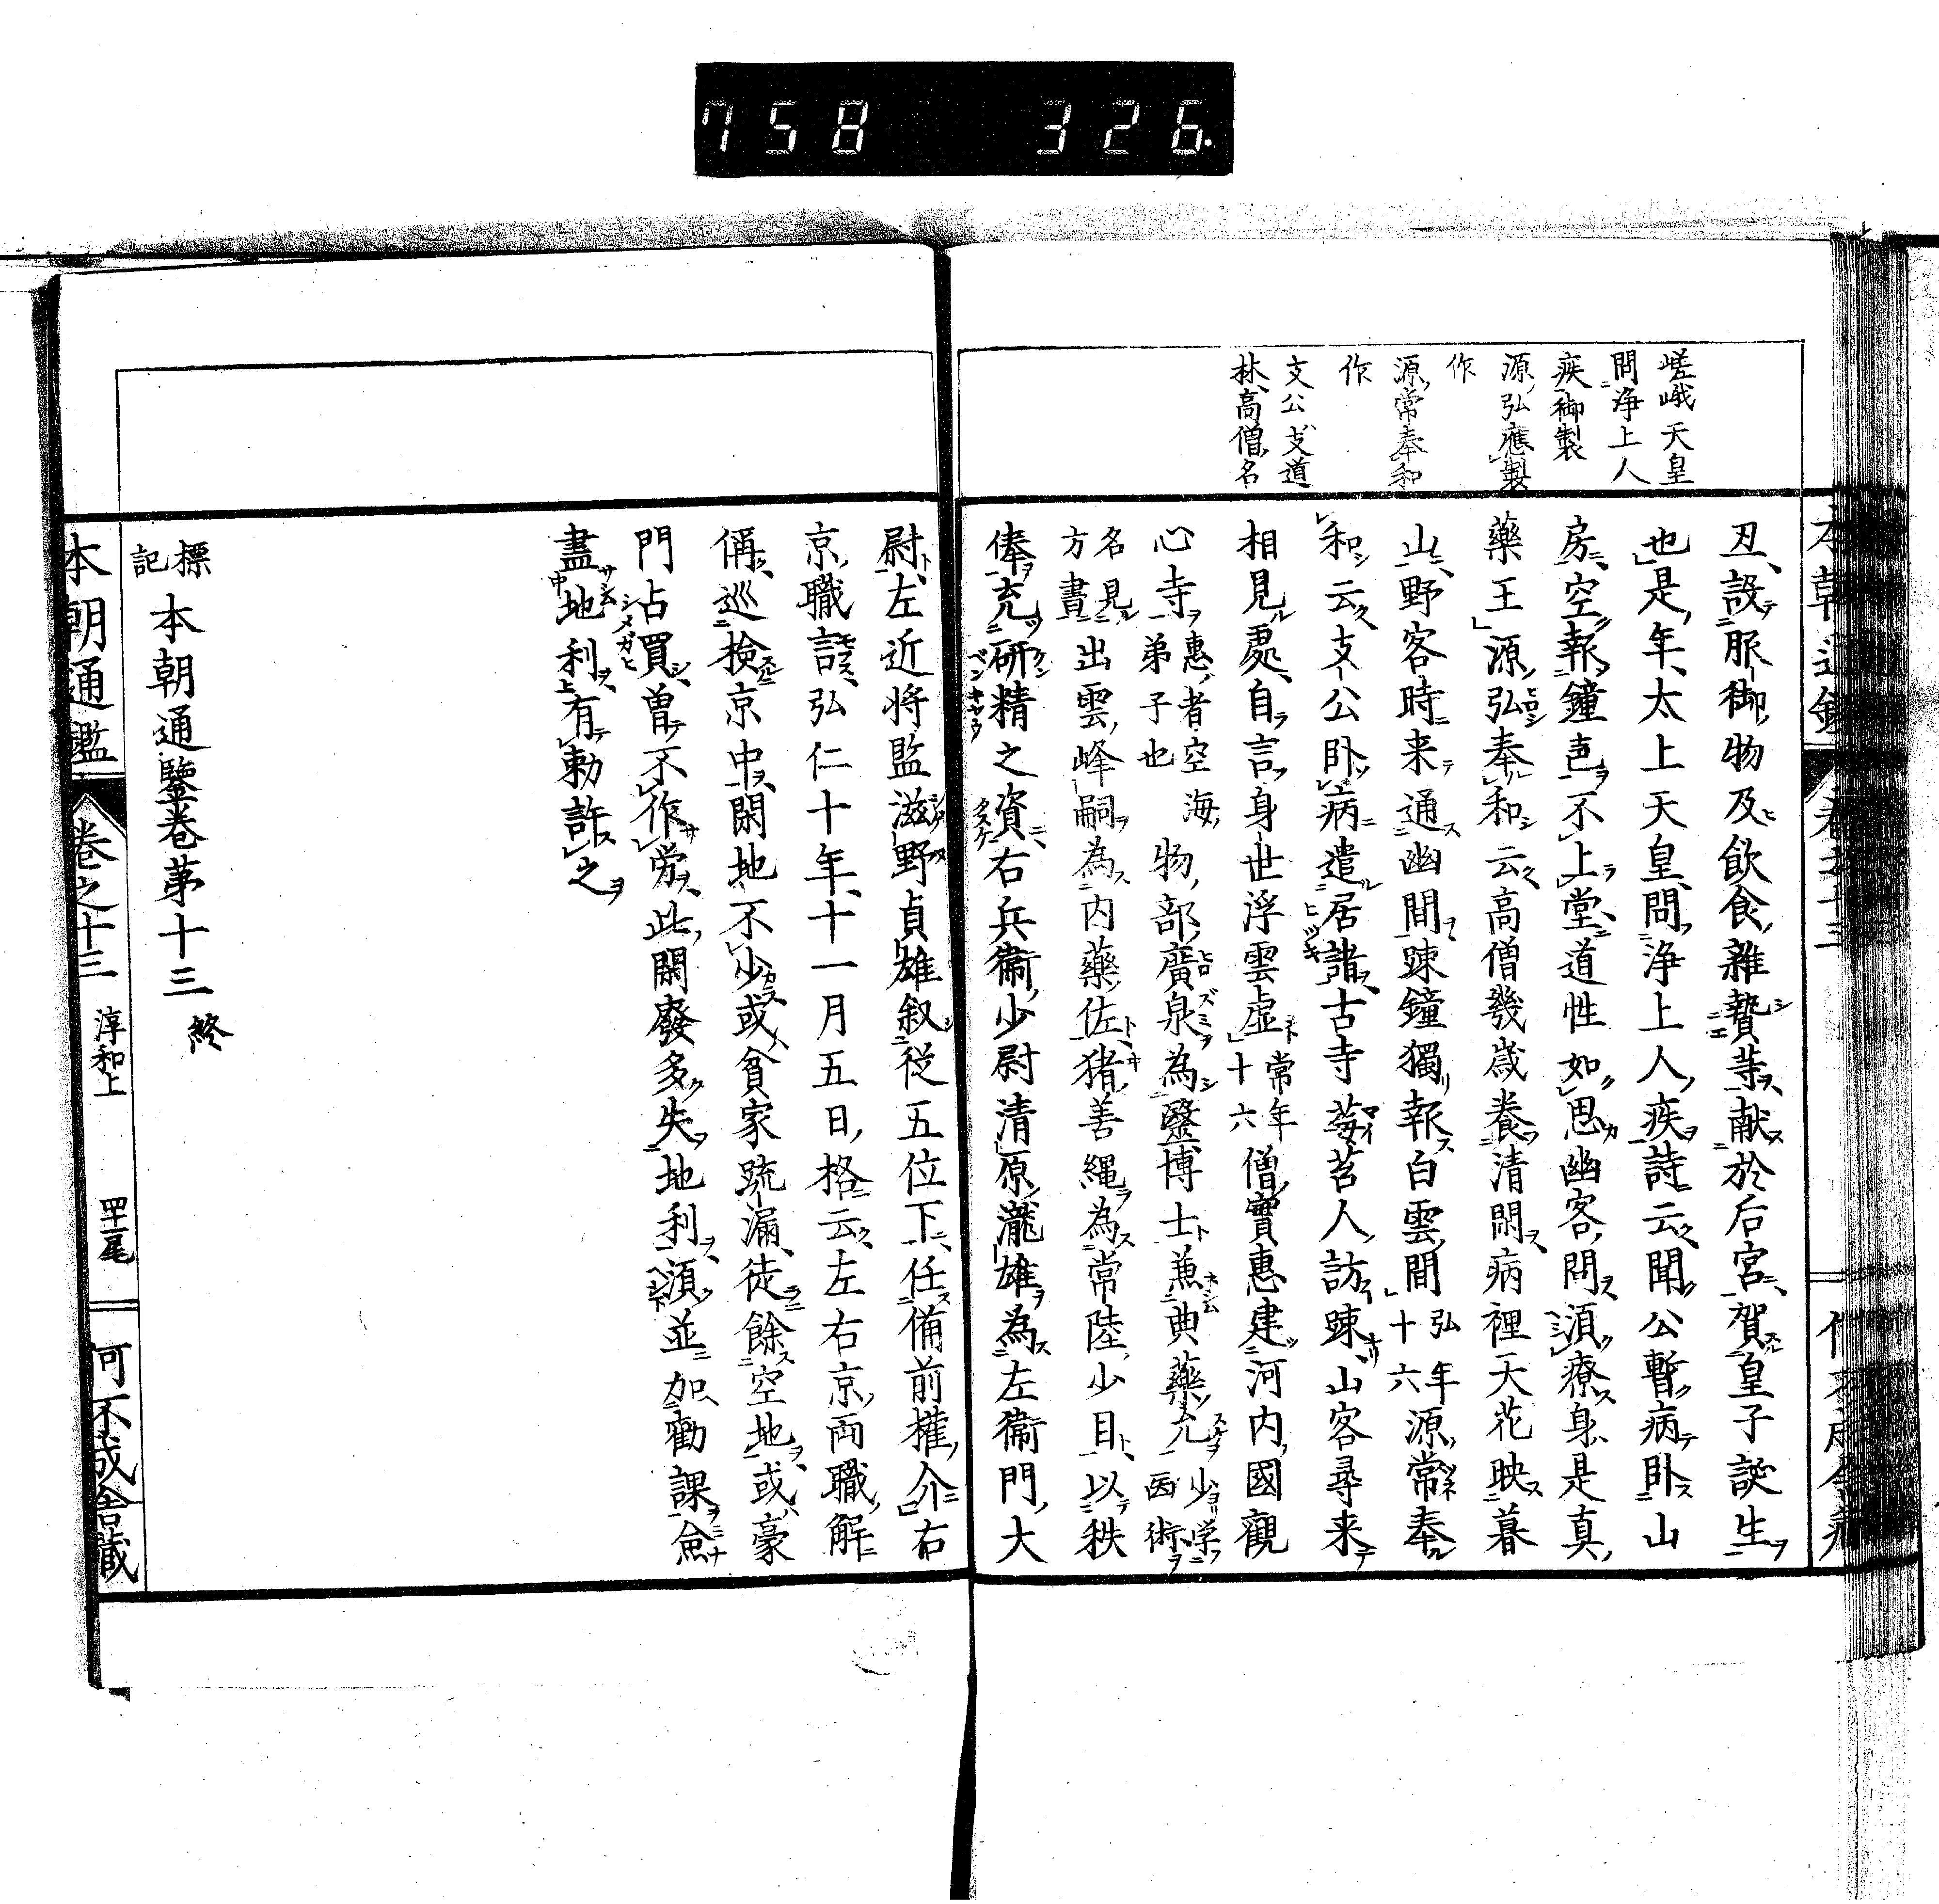 758 326.
嵯峨天皇
問浄上人
疾御製
源弘應製
作
源常奉和
作
支公支道
林高僧名
丑設服御物及飲食雜贄等献於后宮賀皇子誕生
也是年太上天皇問浄上人疾詩云聞公暫病卧山
房空報鐘声不上堂道性如思幽客問須療身是真
藥王源弘奉和云高僧幾歳養清閑病裡天花映暮
山野客時来通幽間踈鐘獨報白雲間弘年十六源常奉
和云支公卧病遣居諸古寺莓苔人訪踈山客尋来
相見處自言身世浮雲虚常年十六僧實惠建河内國觀
心寺惠者空海弟子也物部廣泉為醫博士兼典藥允少学医術
名見方書出雲峰嗣為内藥佐猪善縄為常陸少目以秩
俸充研精之資右兵衞少尉清原瀧雄為左衞門大
尉左近将監滋野貞雄叙従五位下任備前權介右
京職言弘仁十年十一月五日格云左右京両職解
偁巡檢京中閑地不少或貧家疏漏徒餘空地或豪
門占買曽不作営此閑廢多失地利須並加勸課僉
盡地利有勅許之
標記 本朝通鑒巻第十三 終
本朝通鑑 巻之十三 淳和上 四十二尾 何不成舎蔵